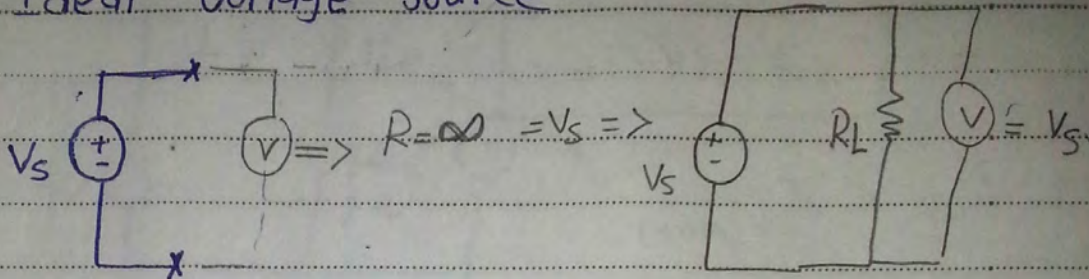 Ideal Voltage source
Vs + - V => R=∞ =Vs => Vs + - RL V = Vs